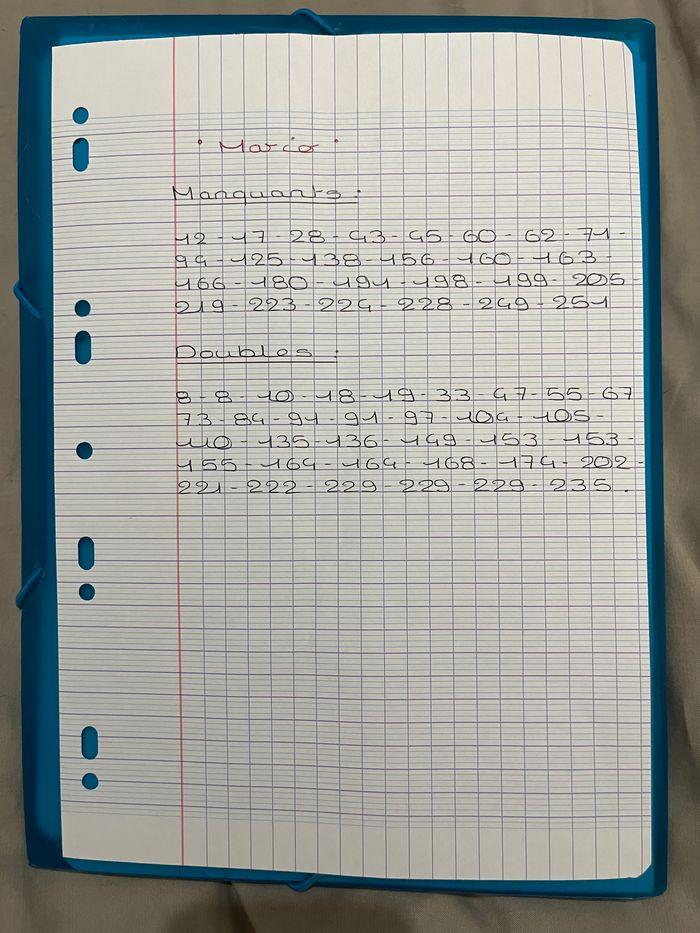 • Mario •
Manquants :
12 - 17 - 28 - 43 - 45 - 60 - 62 - 71 -
94 - 125 - 138 - 156 - 160 - 163 -
166 - 180 - 191 - 198 - 199 - 205 -
219 - 223 - 224 - 228 - 249 - 251
Doubles :
8 - 8 - 10 - 18 - 19 - 33 - 47 - 55 - 67
73 - 84 - 91 - 91 - 97 - 104 - 105 -
110 - 135 - 136 - 149 - 153 - 153 -
155 - 164 - 164 - 168 - 174 - 202 -
221 - 222 - 229 - 229 - 229 - 235 .